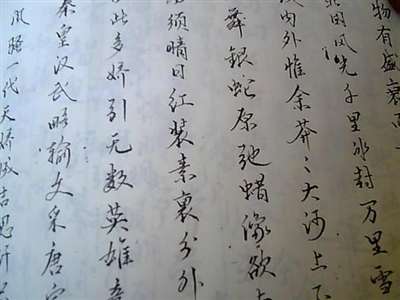 物有盛衰而
国风光千里冰封万里雪
内外惟余莽々大河上下
舞银蛇原驰蜡像欲与
须晴日红装素裹分外
此多娇引无数英雄竞
秦皇汉武略输文采唐宗
风骚一代天骄成吉思汗